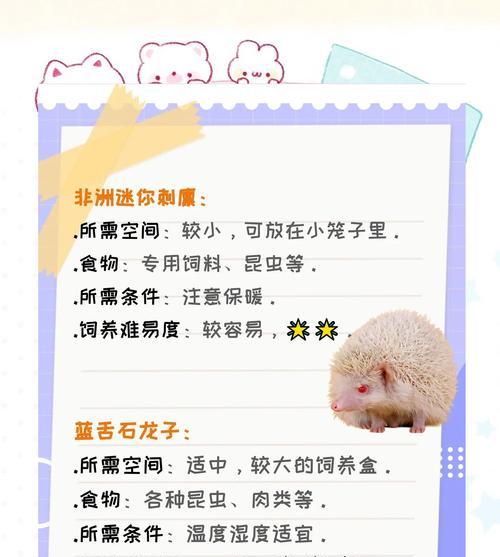 非洲迷你刺猬:
.所需空间: 较小，可放在小笼子里.
.食物: 专用饲料、昆虫等.
.所需条件: 注意保暖.
.饲养难易度: 较容易，.
蓝舌石龙子:
.所需空间: 适中，较大的饲养盒.
.食物: 各种昆虫、肉类等.
.所需条件: 温度湿度适宜.